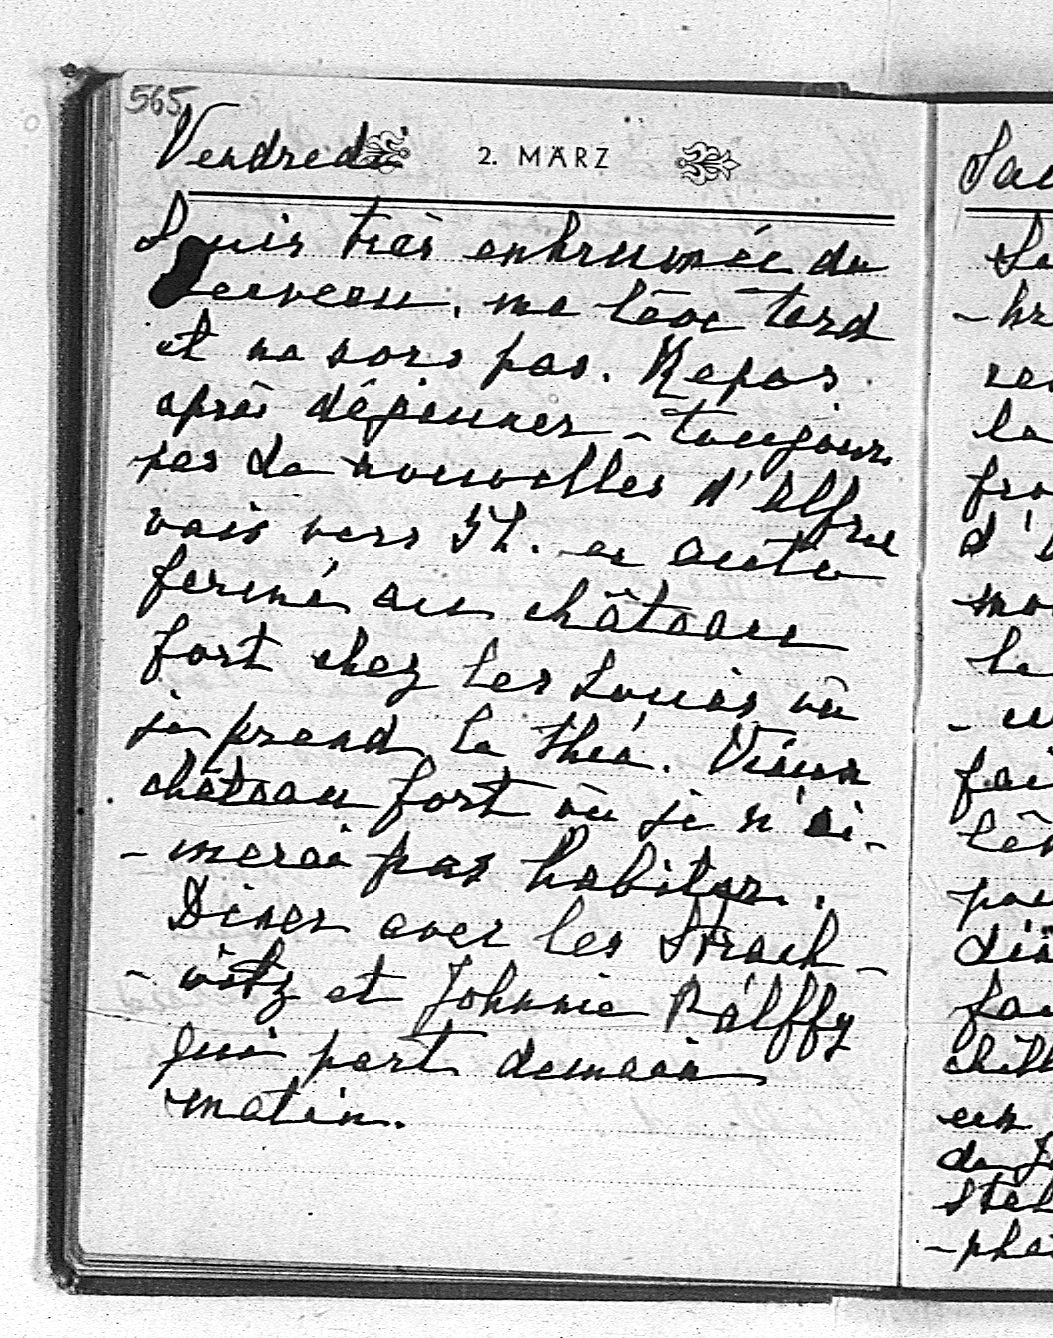 565
Vendredi 2. MÄRZ
Suis très enhrumée du
cerveau, me lève tard
et ne sors pas. Repos
après déjeuner - toujours
pas de nouvelles d'Alfred
vais vers 5h. en auto
fermé au château
fort chez les Louis où
je prend le thé. Vieux
château fort où je n'ai-
-merai pas habiter.
Diner avec les Strach-
-witz et Johnnie Pálffy
qui part demain
matin.